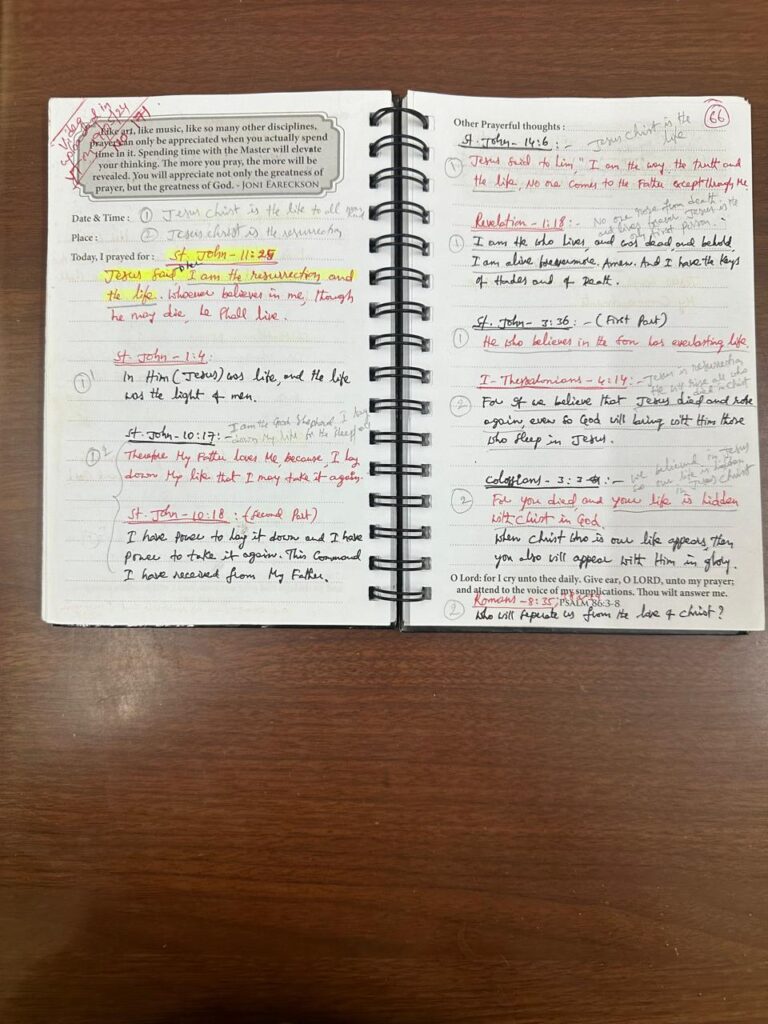 Like art, like music, like so many other disciplines,
prayer can only be appreciated when you actually spend
time in it. Spending time with the Master will elevate
your thinking. The more you pray, the more will be
revealed. You will appreciate not only the greatness of
prayer, but the greatness of God. - JONI EARECKSON
Date & Time : ① Jesus christ is the life to all
Place : ② Jesus christ is the resurrection
Today, I prayed for : St. John - 11:25
Jesus Said I am the resurrection and
the life. Whoever believes in me, though
he may die, he shall live.
St. John - 1:4:
① In Him (Jesus) was life, and the life
was the light of men.
St. John - 10:17: - I am the Good Shepherd, I lay
down My life for the sheep
① Therefore My Father loves Me, because, I lay
down My life that I may take it again.
St. John - 10:18 : (Second Part)
I have power to lay it down and I have
power to take it again. This Command
I have received from My Father.
66
Other Prayerful thoughts :
St. John - 14:6 : - Jesus Christ is the
life
① Jesus said to him, "I am the way, the truth and
the life, No one comes to the Father except through Me
Revelation - 1:18 : - No one rose from death
① I am He who lives, and was dead, and behold,
I am alive forevermore. Amen. And I have the keys
of Hades and of Death.
St. John - 3:36 : - (First Part)
① He who believes in the Son has everlasting life
I - Thessalonians - 4:14 : - Jesus is resurrection
② For if we believe that Jesus died and rose
again, even so God will bring with Him those
who sleep in Jesus.
Colossians - 3:3 : - we believed in Jesus
so our life is hidden
in Jesus Christ
② For you died, and your life is hidden
with Christ in God.
When Christ who is our life appears, then
you also will appear with Him in glory.
O Lord: for I cry unto thee daily. Give ear, O LORD, unto my prayer;
and attend to the voice of my supplications. Thou wilt answer me.
PSALM 86:3-8
Romans - 8:35
② Who will seperate us from the love of Christ?